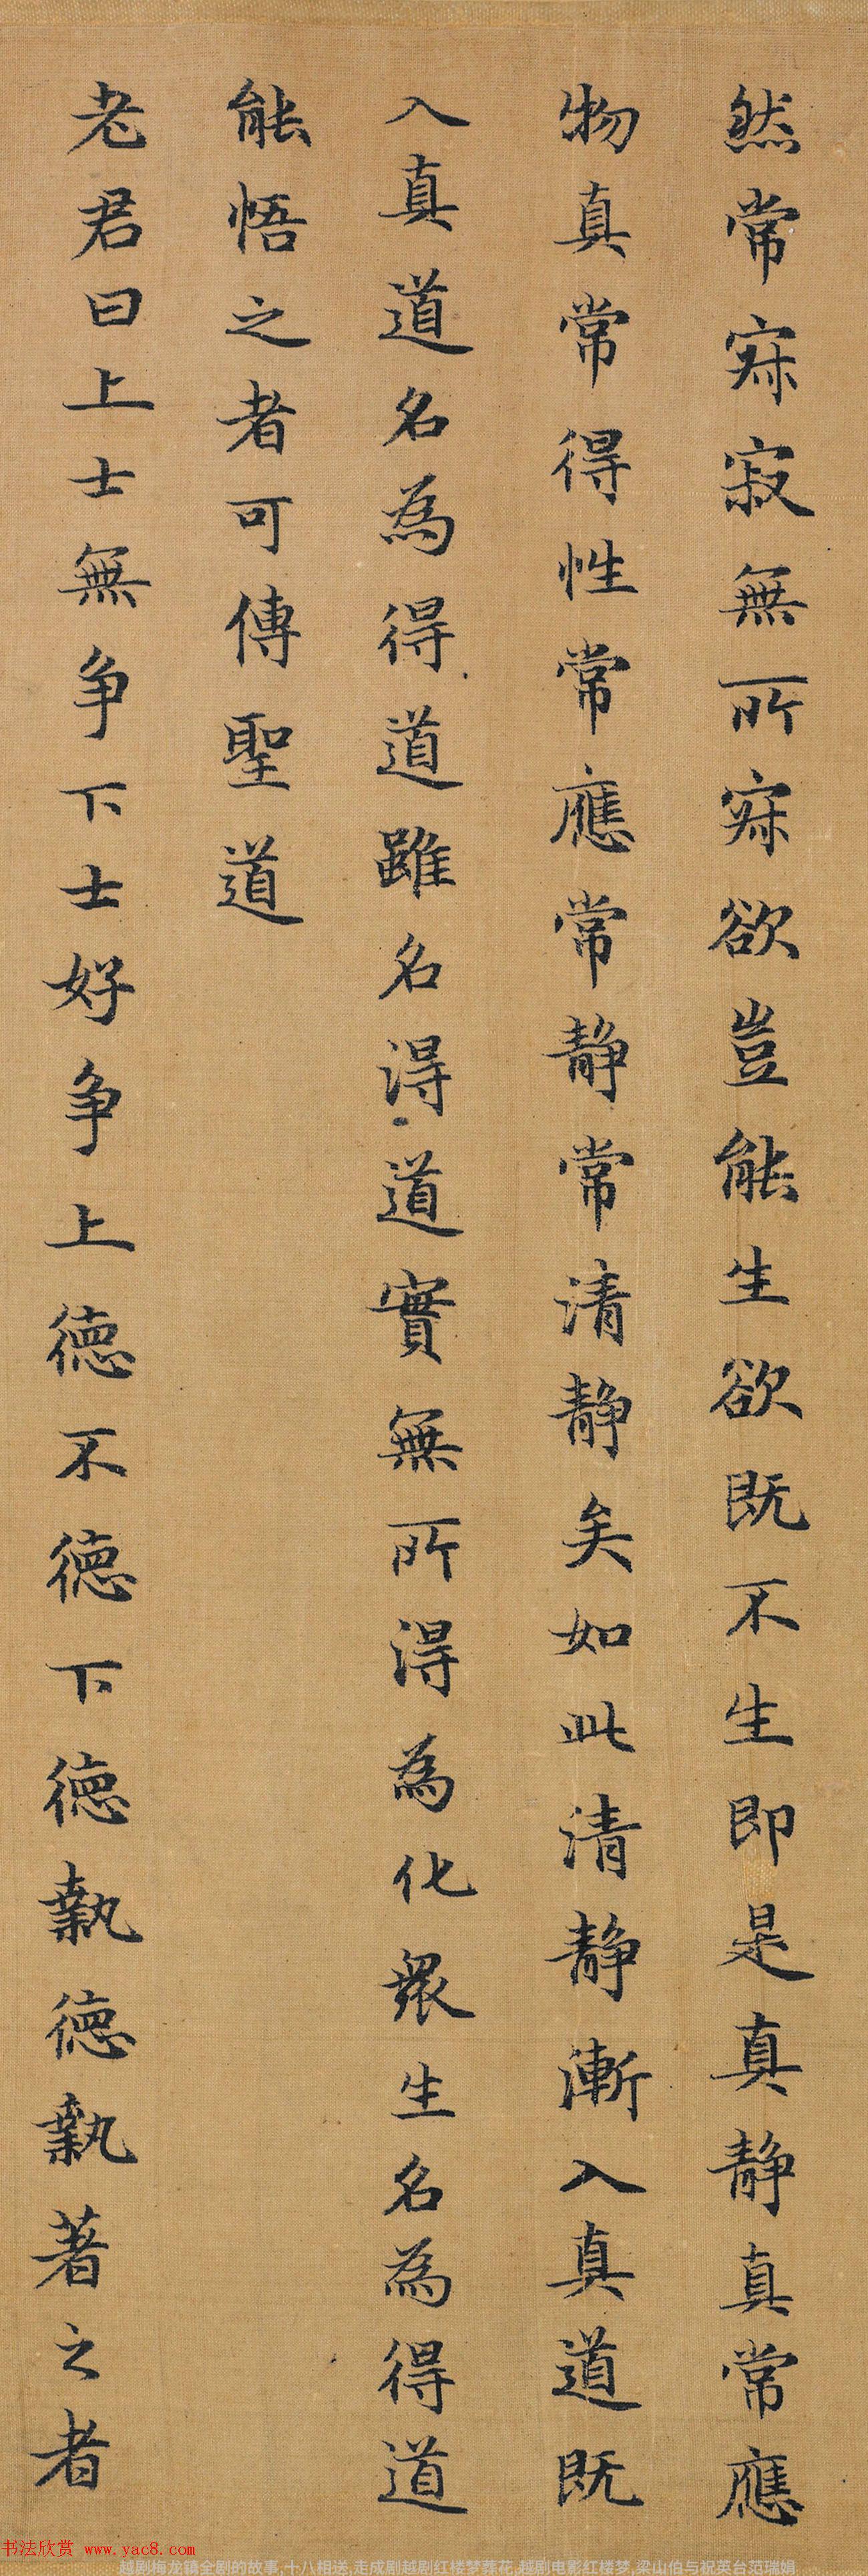 然常寂寂無所寂欲豈能生欲既不生即是真静真常應
物真常得性常應常静常清静矣如此清静漸入真道既
入真道名為得道雖名得道實無所得為化衆生名為得道
能悟之者可傳聖道
老君曰上士無争下士好争上徳不徳下徳執徳執著之者
书法欣赏 www.yac8.com
越剧梅龙镇全剧的故事,十八相送,走成剧越剧红楼梦葬花,越剧电影红楼梦,梁山伯与祝英台范瑞娟